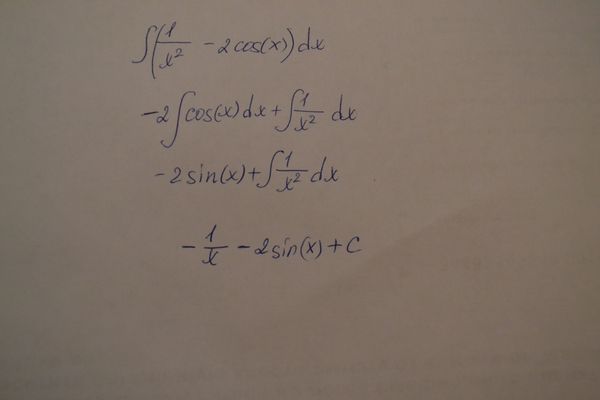 ∫(1/x² - 2cos(x))dx
-2∫cos(x)dx + ∫1/x² dx
-2sin(x) + ∫1/x² dx
-1/x - 2sin(x) + C